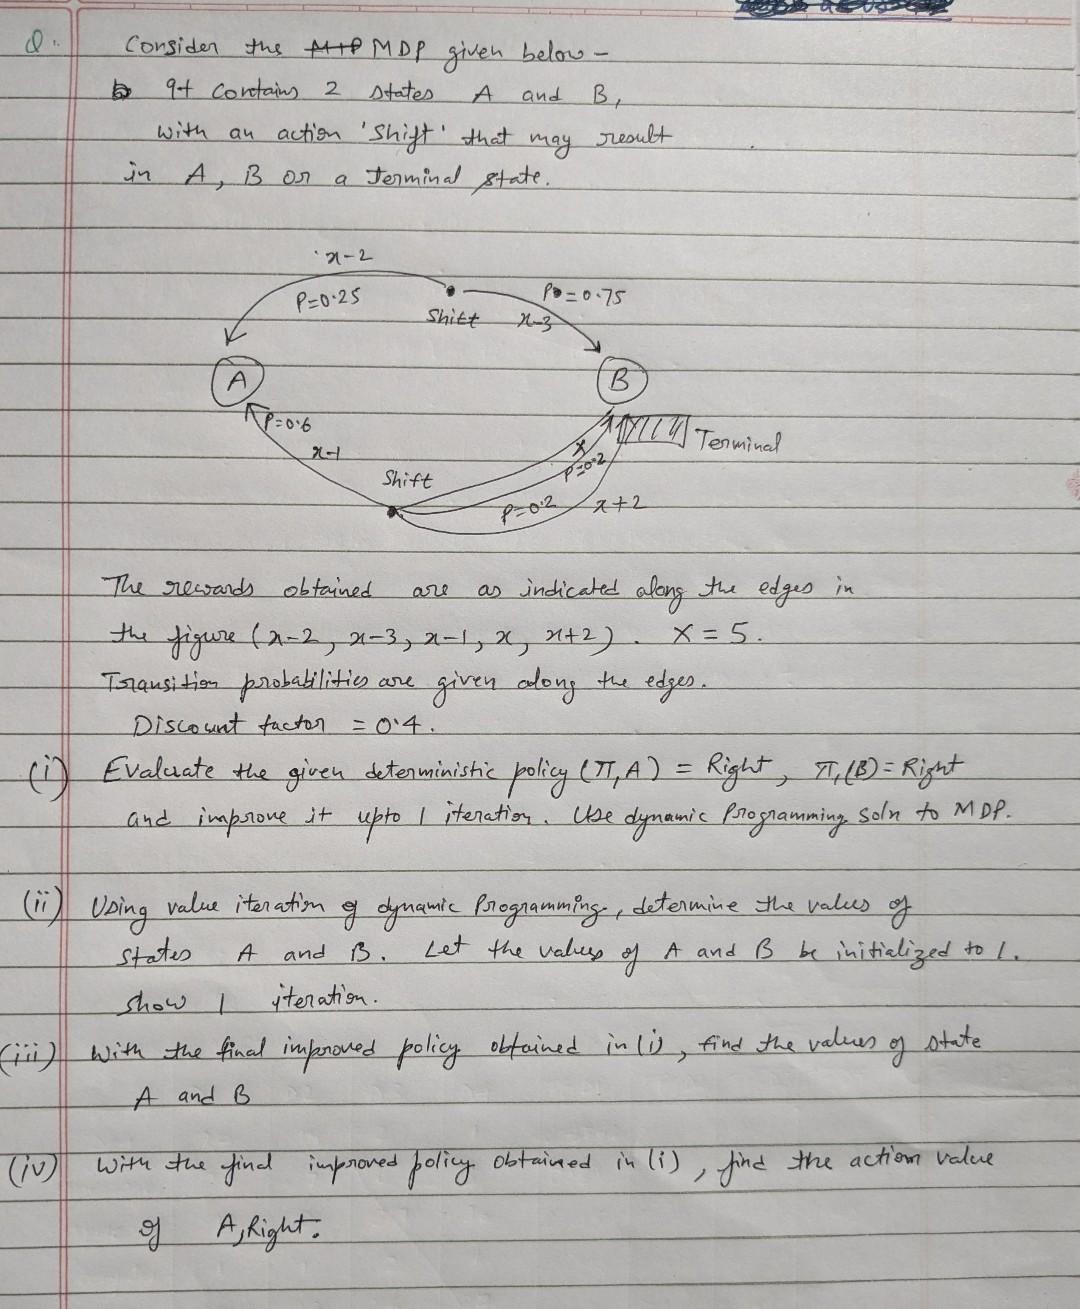 Q.
Consider the MDP given below -
It contains 2 states A and B,
with an action 'Shift' that may result
in A, B or a Terminal state.
x-2
P=0.25
Shift
P=0.75
x-3
A
B
P=0.6
x-1
Shift
x
P=0.2
Terminal
P=0.2
x+2
The rewards obtained are as indicated along the edges in
the figure (x-2, x-3, x-1, x, x+2). X = 5.
Transition probabilities are given along the edges.
Discount factor = 0.4.
(i) Evaluate the given deterministic policy (π, A) = Right, π,(B) = Right
and improve it upto 1 iteration. Use dynamic Programming soln to MDP.
(ii) Using value iteration of dynamic Programming, determine the values of
states A and B. Let the values of A and B be initialized to 1.
show 1 iteration.
(iii) With the final improved policy obtained in (i), find the values of state
A and B
(iv) With the final improved policy obtained in (i), find the action value
of A, Right.